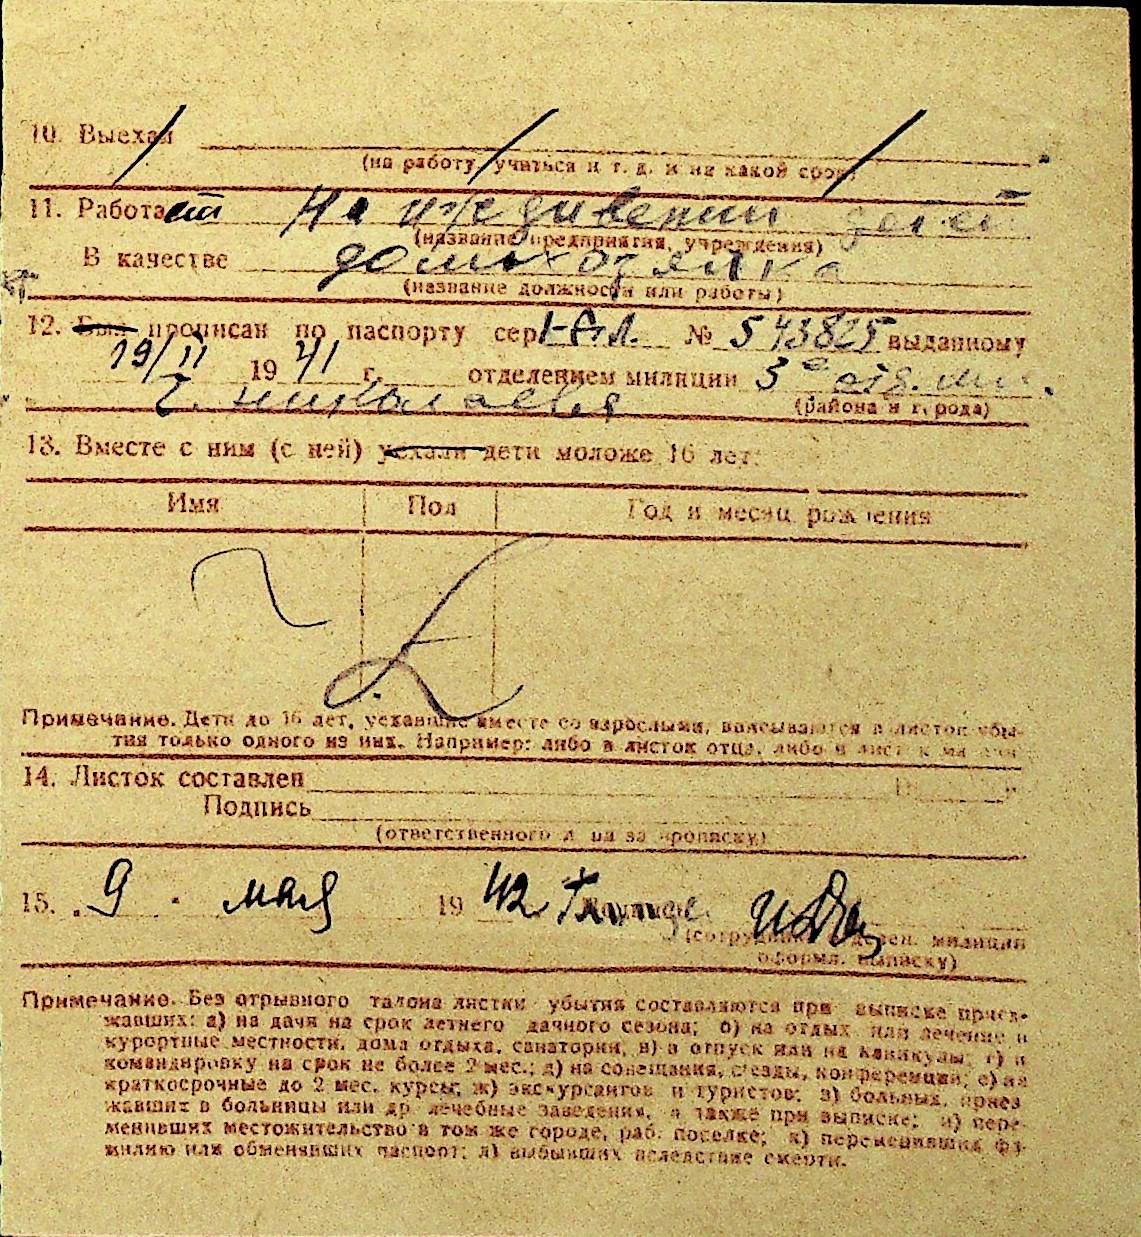 10. Выехал
(на работу, учиться и т. д. и на какой срок)
11. Работает На иждивении детей
(название предприятия, учреждения)
В качестве домохозяйка
(название должности или работы)
12. Был прописан по паспорту сер. № 543825 выданному
19/II 1941 г. отделением милиции 3е отд. мил.
г. Николаева
(района и города)
13. Вместе с ним (с ней) уехали дети моложе 16 лет:
Имя Пол Год и месяц рождения
Примечание. Дети до 16 лет, уехавшие вместе со взрослыми, вписываются в листок убы-
тия только одного из них. Например: либо в листок отца, либо в листок матери
14. Листок составлен 19 г.
Подпись
(ответственного лица за прописку)
15. 9 мая 1942
(сотрудник отделен. милиции
оформл. выписку)
Примечание. Без отрывного талона листки убытия составляются при выписке приез-
жавших: а) на дачи на срок летнего дачного сезона; б) на отдых или лечение в
курортные местности, дома отдыха, санатории; в) в отпуск или на каникулы; г) в
командировку на срок не более 2 мес.; д) на совещания, съезды, конференции; е) на
краткосрочные до 2 мес. курсы; ж) экскурсантов и туристов; з) больных, приез-
жавших в больницы или др. лечебные заведения, а также при выписке; и) пере-
менивших местожительство в том же городе, раб. поселке; к) переменивших фа-
милию или обменявших паспорт; л) выбывших вследствие смерти.